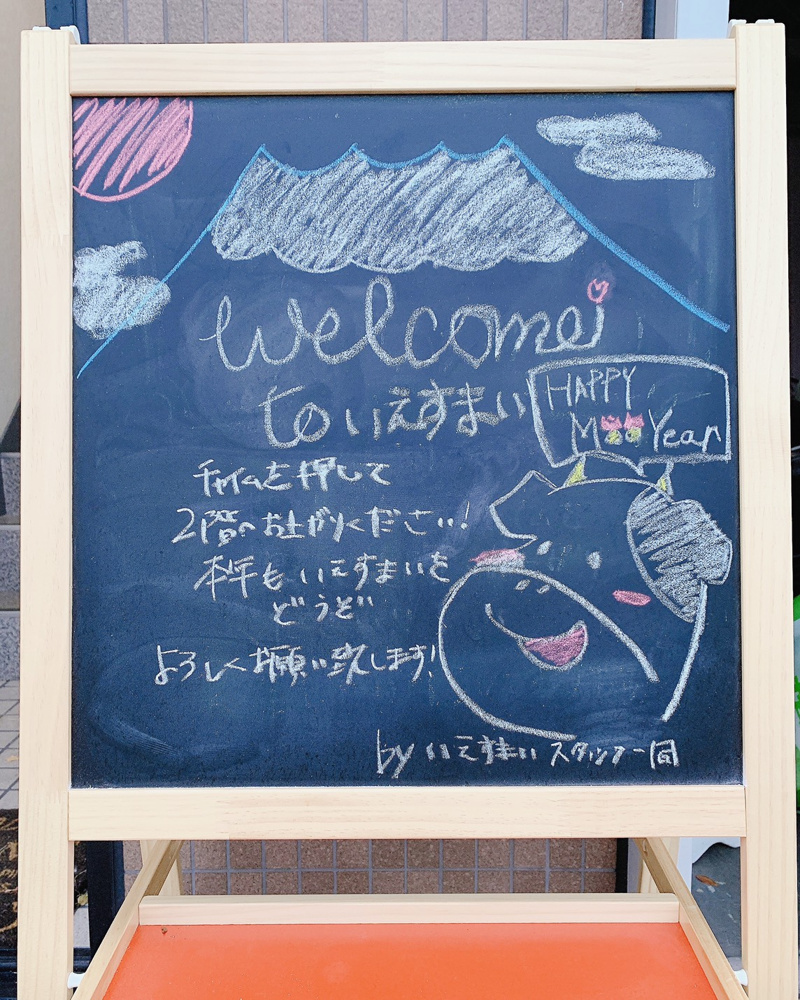 welcome!
to いえすまい
HAPPY
Moo Year
チャイムを押して
2階へお上がりください!
本年もいえすまいを
どうぞ
よろしくお願い致します!
by いえすまい スタッフ一同